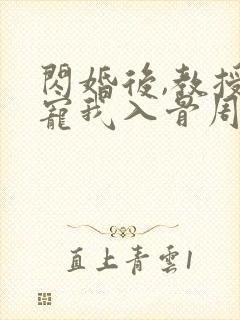 閃婚後,教授
寵我入骨周
直上青雲1